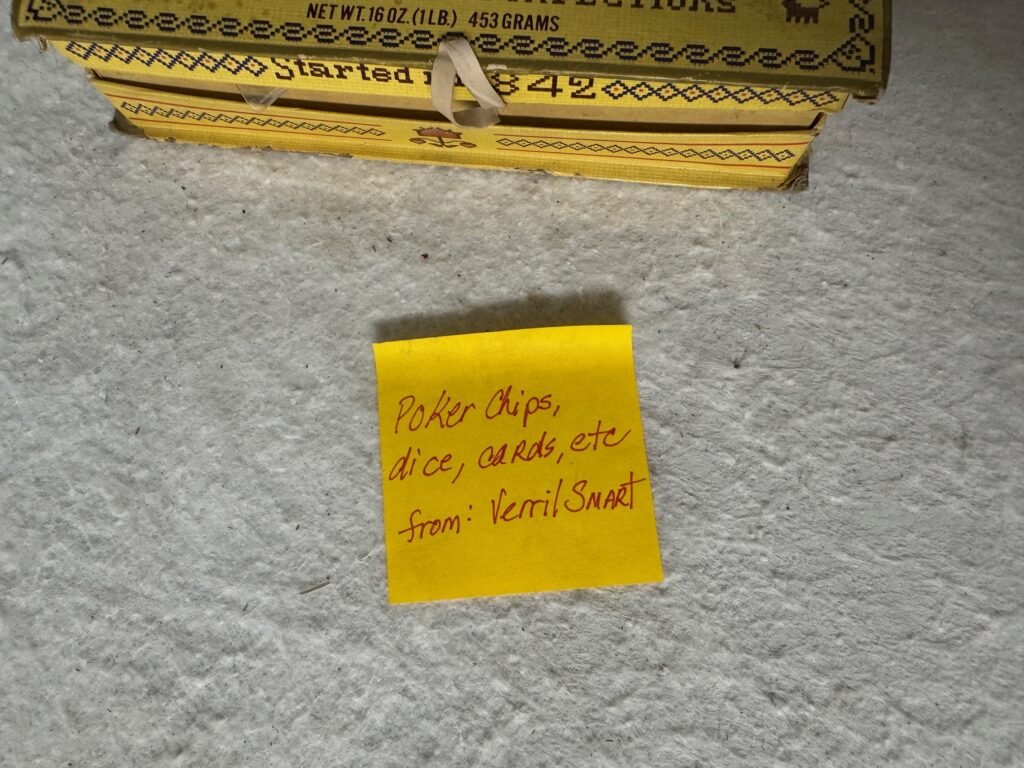 NET WT. 16 OZ. (1 LB.) 453 GRAMS
Started 1842
Poker Chips,
dice, cards, etc
from: Verril SMART